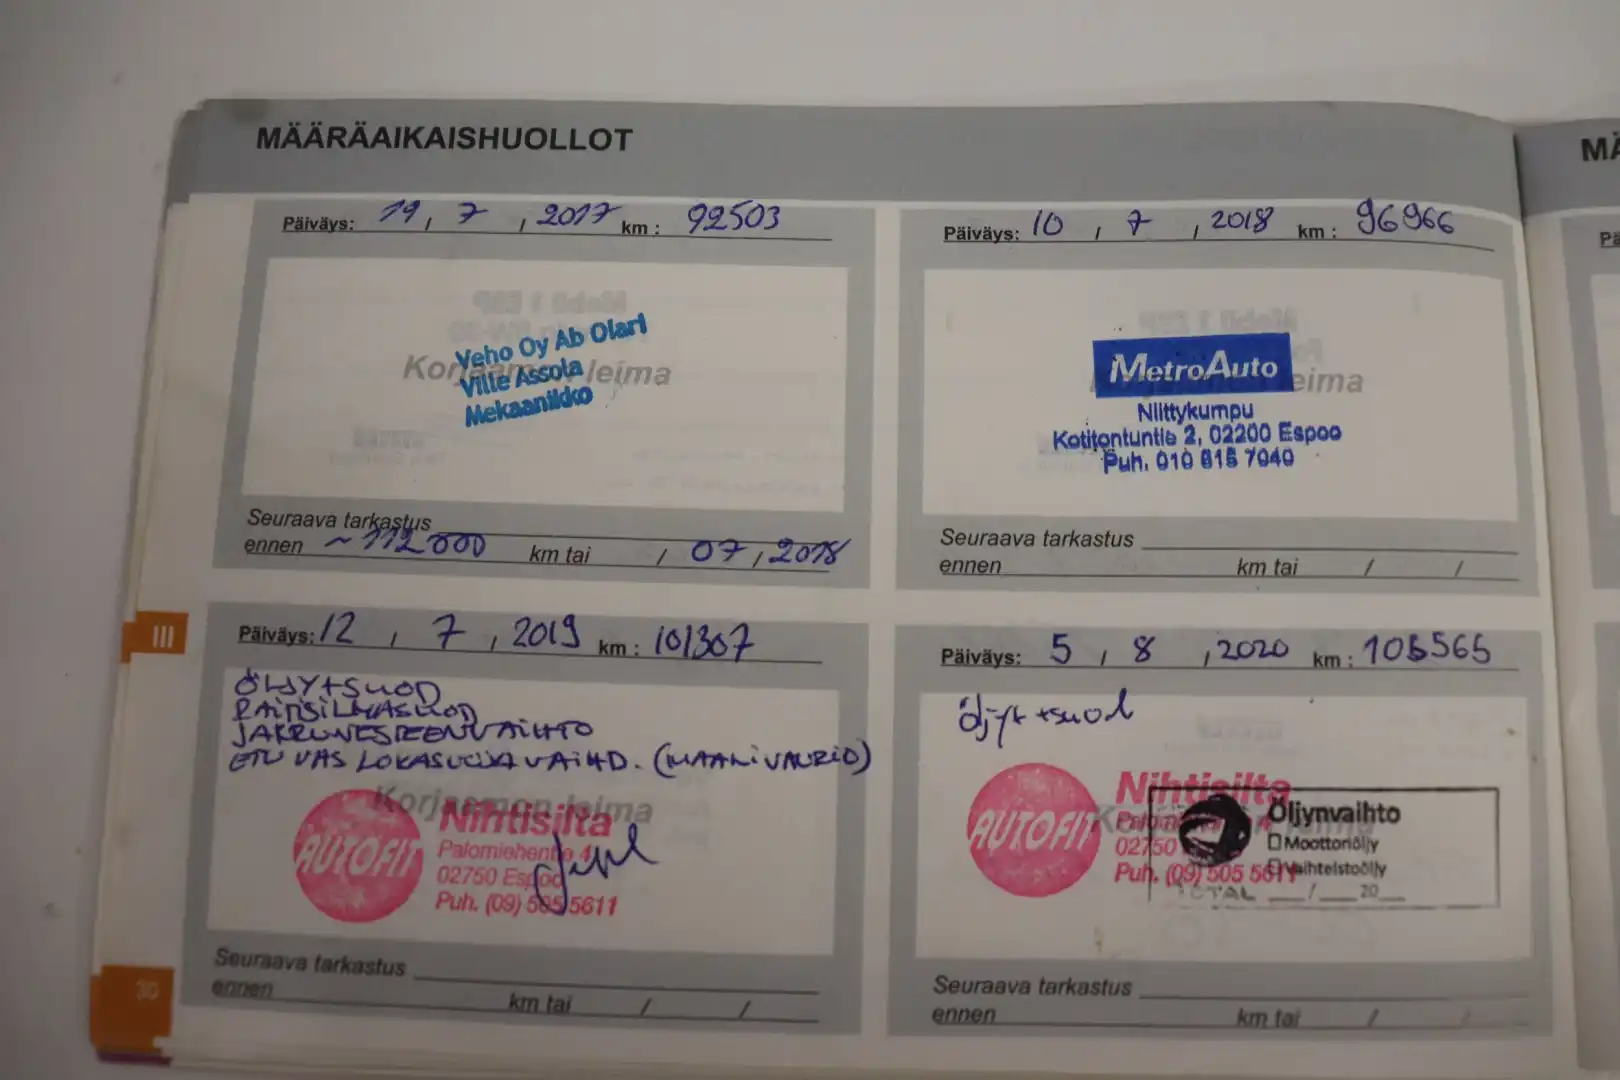 MÄÄRÄAIKAISHUOLLOT
MÄ
Päiväys: 19 / 7 / 2017 km : 92503
Veho Oy Ab Olari
Ville Assola
Mekaanikko
Korjaamon leima
Seuraava tarkastus
ennen ~112000 km tai / 07 / 2018
Päiväys: 10 / 7 / 2018 km : 96966
MetroAuto
Niittykumpu
Kotitontuntie 2, 02200 Espoo
Puh. 010 615 7040
leima
Seuraava tarkastus
ennen km tai / /
III
Päiväys: 12 / 7 / 2019 km : 101307
ÖLJYTSUOD
RAITISILMASUOD
JARRUNESTEENVAIHTO
ETU VAS LOKASUOJA VAIHD. (MAALIVAURIO)
Korjaamon leima
AUTOFIT
Nihtisilta
Palomiehentie 4
02750 Espoo
Puh. (09) 505 5611
Seuraava tarkastus
ennen km tai / /
Päiväys: 5 / 8 / 2020 km : 105565
öljyt+suod
AUTOFIT
Nihtisilta
02750
Puh. (09) 505 5611
Öljynvaihto
Moottoriöljy
Vaihteistoöljy
TOTAL / 20
Seuraava tarkastus
ennen km tai / /
30